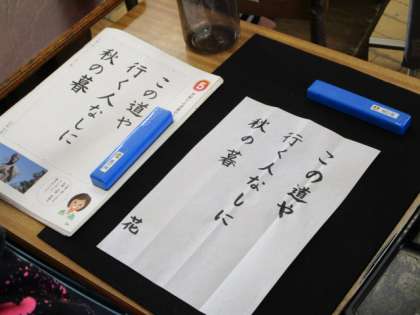 5
この道や
行く人なしに
秋の暮
この道や
行く人なしに
秋の暮
花